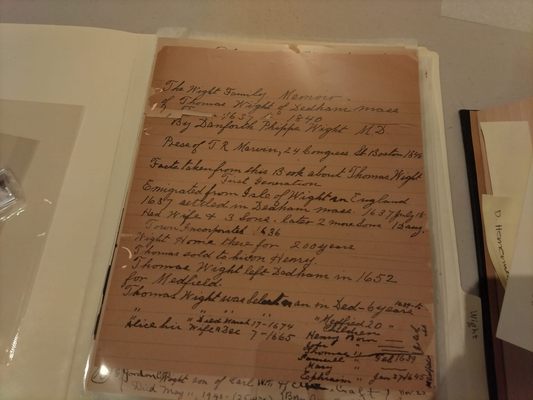 The Wight Family Memoir
of Thomas Wight of Dedham mass
1637 1840
By Danforth Phipps Wight M D
Press of T. R. Marvin, 24 Congress St Boston 1848
Facts taken from this Book about Thomas Wight
First Generation
Emigrated from Isle of Wight an England
1637 settled in Dedham mass. 1637 July 18
Had Wife & 3 Sons. later 2 more Sons 1 Daug.
Town Incorporated 1636
Wight Home there for 200 years
Thomas sold to his son Henry
Thomas Wight left Dedham in 1652
for Medfield
Thomas Wight was Selectman in Ded - 6 years
" " " Medfield 20 "
" " Died March 17 - 1674
Children
Alice his Wife Dec 7 - 1665
Henry Born
John "
Thomas "
Samuel " Feb 1639
Mary "
Ephraim " Jan 27 1645
Gordon C Wight son of Earl
Died May
Wight